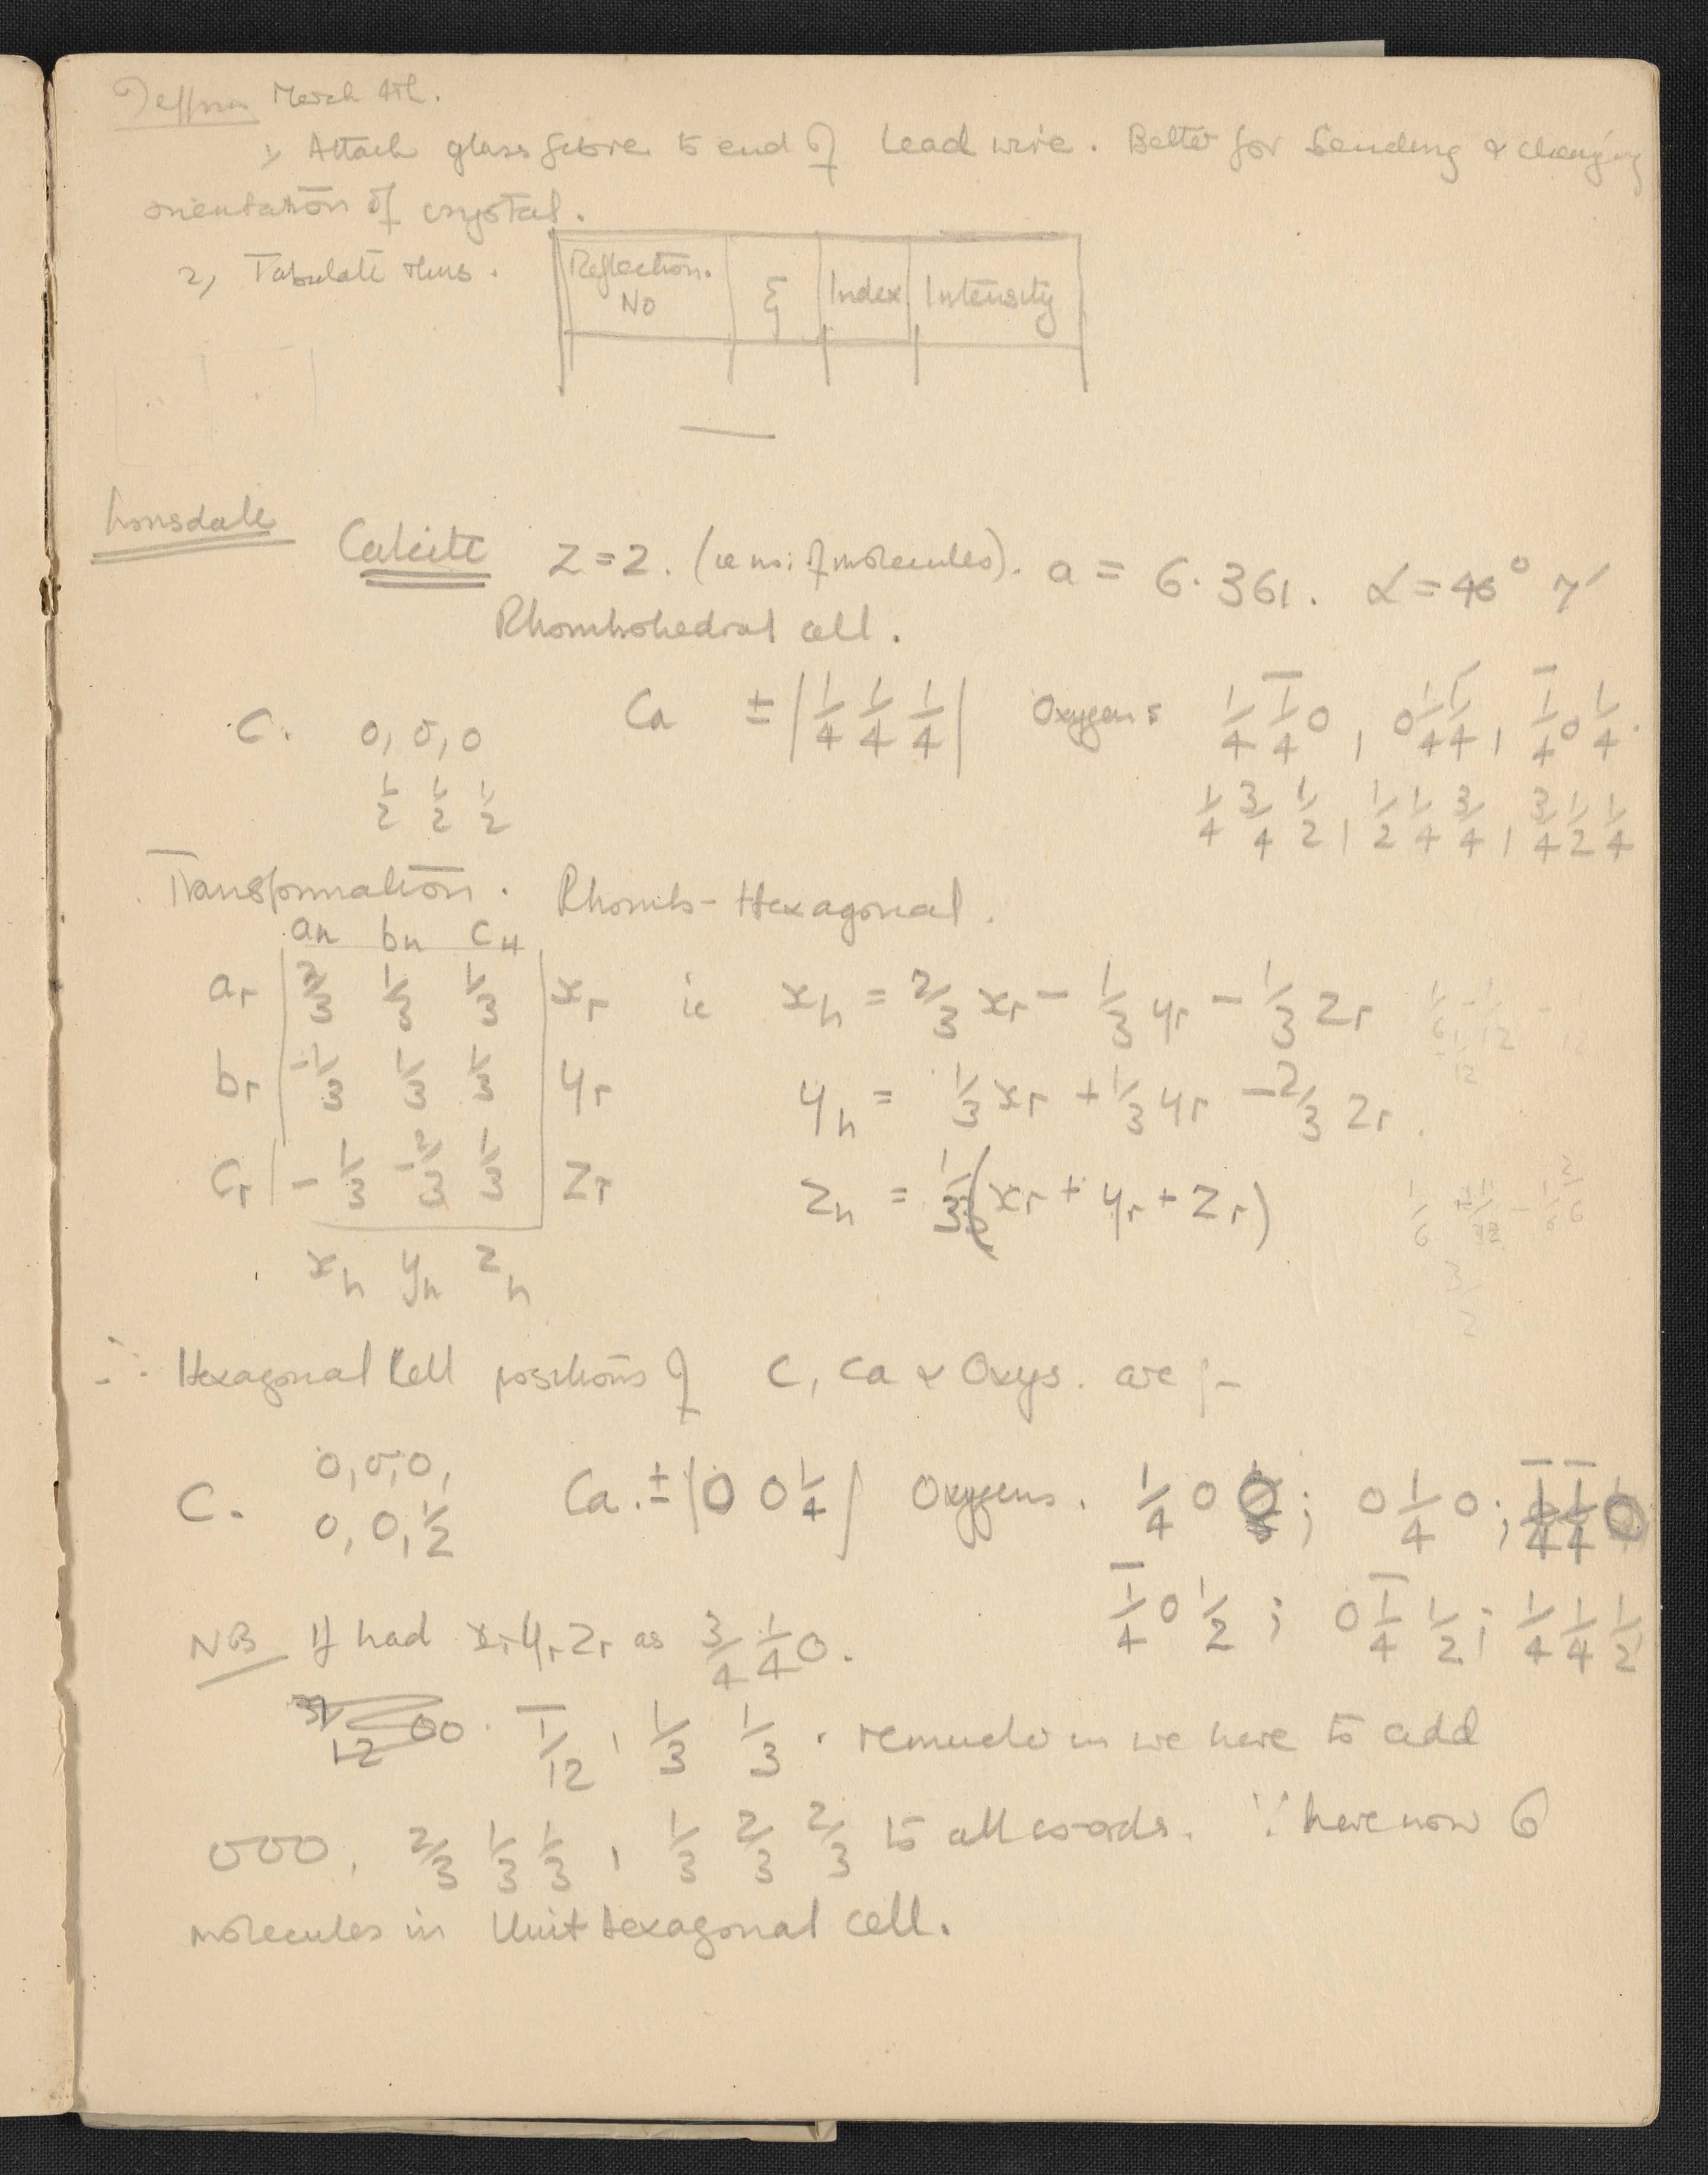 Jeffrey March 4th.
1) Attach glass fibre to end of lead wire. Better for bending & changing
orientation of crystal.
2) Tabulate thus.
Reflection. No | ξ | Index | Intensity
Lonsdale
Calcite Z = 2. (ie no: of molecules). a = 6.361. α = 46° 7′
Rhombohedral cell.
C. 0, 0, 0 Ca ± |1/4 1/4 1/4| Oxygens 1/4 1̄/4 0, 0 1/4 1̄/4, 1̄/4 0 1/4.
1/2 1/2 1/2 1/4 3/4 1/2, 1/2 1/4 3/4, 3/4 1/2 1/4
Transformation. Rhomb-Hexagonal.
aH bH cH
ar | 2/3 1/3 1/3 | xr ie xh = 2/3 xr - 1/3 yr - 1/3 zr
br | -1/3 1/3 1/3 | yr yh = 1/3 xr + 1/3 yr - 2/3 zr.
cr | - 1/3 -2/3 1/3 | zr zh = 1/3 (xr + yr + zr)
xh yh zh
∴ Hexagonal Cell positions of C, Ca & Oxys. are :-
C. 0, 0, 0, Ca. ± |0 0 1/4| Oxygens. 1/4 0 0; 0 1/4 0; 1̄/4 1̄/4 0
0, 0, 1/2 1̄/4 0 1/2; 0 1̄/4 1/2; 1/4 1/4 1/2
NB If had xr yr zr as 3/4 1/4 0.
00. 1̄/12, 1/3 1/3. we have to add
000, 2/3 1/3 1/3, 1/3 2/3 2/3 to all co-ords. ∵ have now 6
molecules in Unit Hexagonal cell.